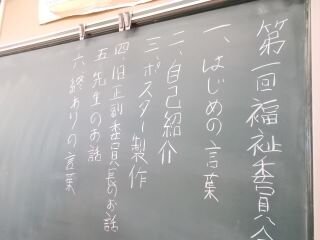 第一回福祉委員会
一、はじめの言葉
二、自己紹介
三ポスター製作
四、旧正副委員長のお話
五先生のお話
六、終わりの言葉